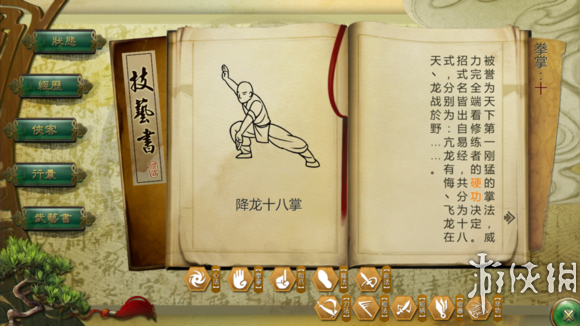 狀態
經歷
俠客
行囊
技藝書
技藝書
降龙十八掌
拳掌：十
被誉为天下第一刚猛的掌法，威
力完全端看修炼者的硬功决定。
招式名皆出自易经，共分为十八
式，分别为：亢龙有悔、飞龙在
天、龙战於野……。
游侠网